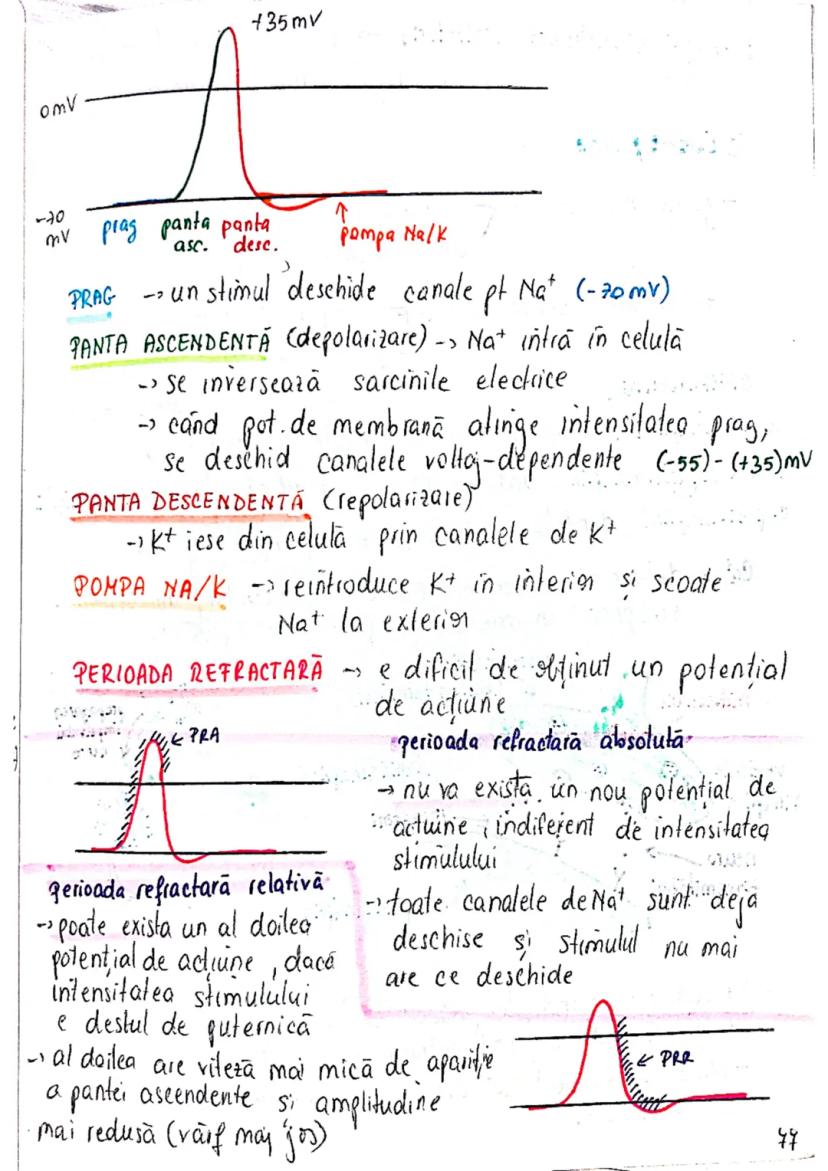 +35mV
0mV
-70
mV
prag
panta
asc.
panta
desc.
pompa Na/K
PRAG → un stimul deschide canale pt Na⁺ (-70mV)
PANTA ASCENDENTĂ (depolarizare) → Na⁺ intră în celulă
→ se inversează sarcinile electrice
→ când pot. de membrană atinge intensitatea prag,
se deschid canalele voltaj-dependente (-55) - (+35)mV
PANTA DESCENDENTĂ (repolarizare)
→ K⁺ iese din celulă prin canalele de K⁺
POMPA NA/K → reintroduce K⁺ în interior și scoate
Na⁺ la exterior
PERIOADA REFRACTARĂ → e dificil de obținut un potențial
de acțiune
← PRA
perioada refractară absolută
→ nu va exista un nou potențial de
acțiune, indiferent de intensitatea
stimulului
→ toate canalele de Na⁺ sunt deja
deschise și stimulul nu mai
are ce deschide
perioada refractară relativă
→ poate exista un al doilea
potențial de acțiune, dacă
intensitatea stimulului
e destul de puternică
→ al doilea are viteză mai mică de apariție
a pantei ascendente și amplitudine
mai redusă (vârf mai jos)
← PRR
77